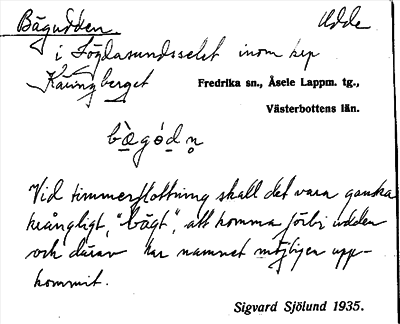 Bägudden. Udde
i Lögdasundsselet inom krp
Käringberget
Fredrika sn., Åsele Lappm. tg.,
Västerbottens län.
Vid timmerflottning skall det vara ganska
krångligt, "bägt", att komma förbi udden
och därav har namnet möjligen upp-
kommit.
Sigvard Sjölund 1935.